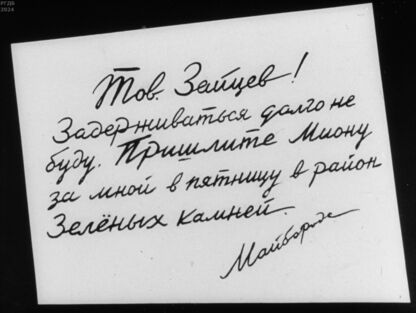 РГДБ
2024
Тов. Зайцев!
Задерживаться долго не
буду. Пришлите Миону
за мной в пятницу в район
Зелёных камней.
Майборода